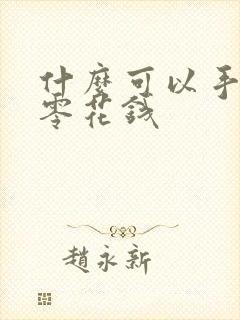 什麼可以手
零花錢
趙永新